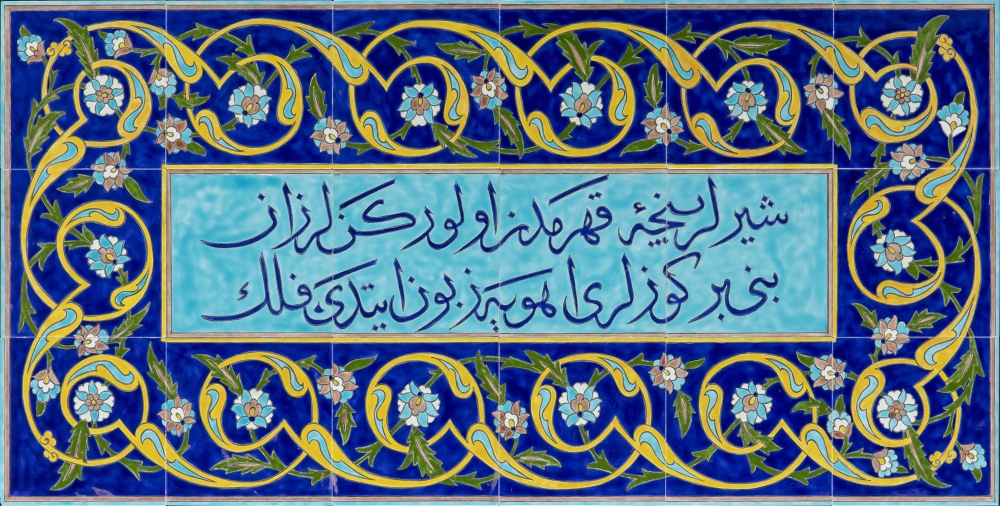 شیرلر پنجۀ قهرمدن اولورکن لرزان
بنی بر کوزلری اهویه زبون ایتدی فلك